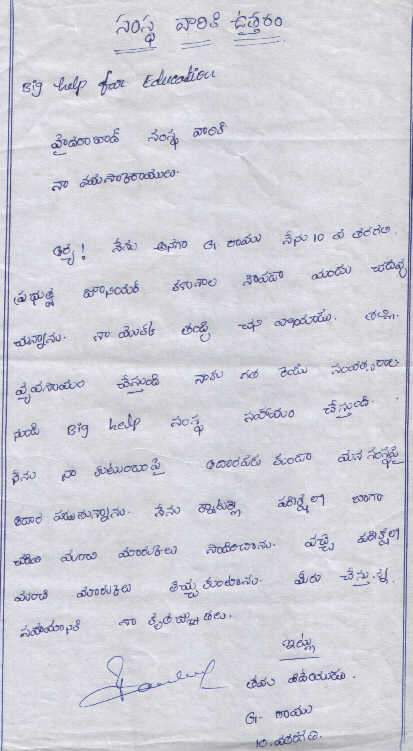 సంస్థ వారికి ఉత్తరం
Big help for Education
హైదరాబాద్ సంస్థ వారికి
నా నమస్కారములు.
ఆర్య! నేను అనగా G. రాము నేను 10 వ తరగతి.
ప్రభుత్వ జూనియర్ కళాశాల నందు చదువు
చున్నాను. నా యొక్క తండ్రి చని పోయాడు. తల్లి
వ్యవసాయం చేస్తుంది నాకు గత రెండు సంవత్సరాల
నుండి Big help సంస్థ సహాయం చేస్తుంది.
నేను నా కుటుంబంపై ఆదారపడ కుండా మన సంస్థపై
ఆదార పడుతున్నాను. నేను క్వాటర్లీ పరీక్షలో బాగా
చదివి మంచి మార్కులు సాదించాను. వచ్చే పరీక్షలో
మంచి మార్కులు తెచ్చుకుంటాను. మీరు చేస్తున్న
సహాయానికి నా కృతజ్ఞతలు.
ఇట్లు
తమ విదేయుడు.
G. రాము
10.వతరగతి.